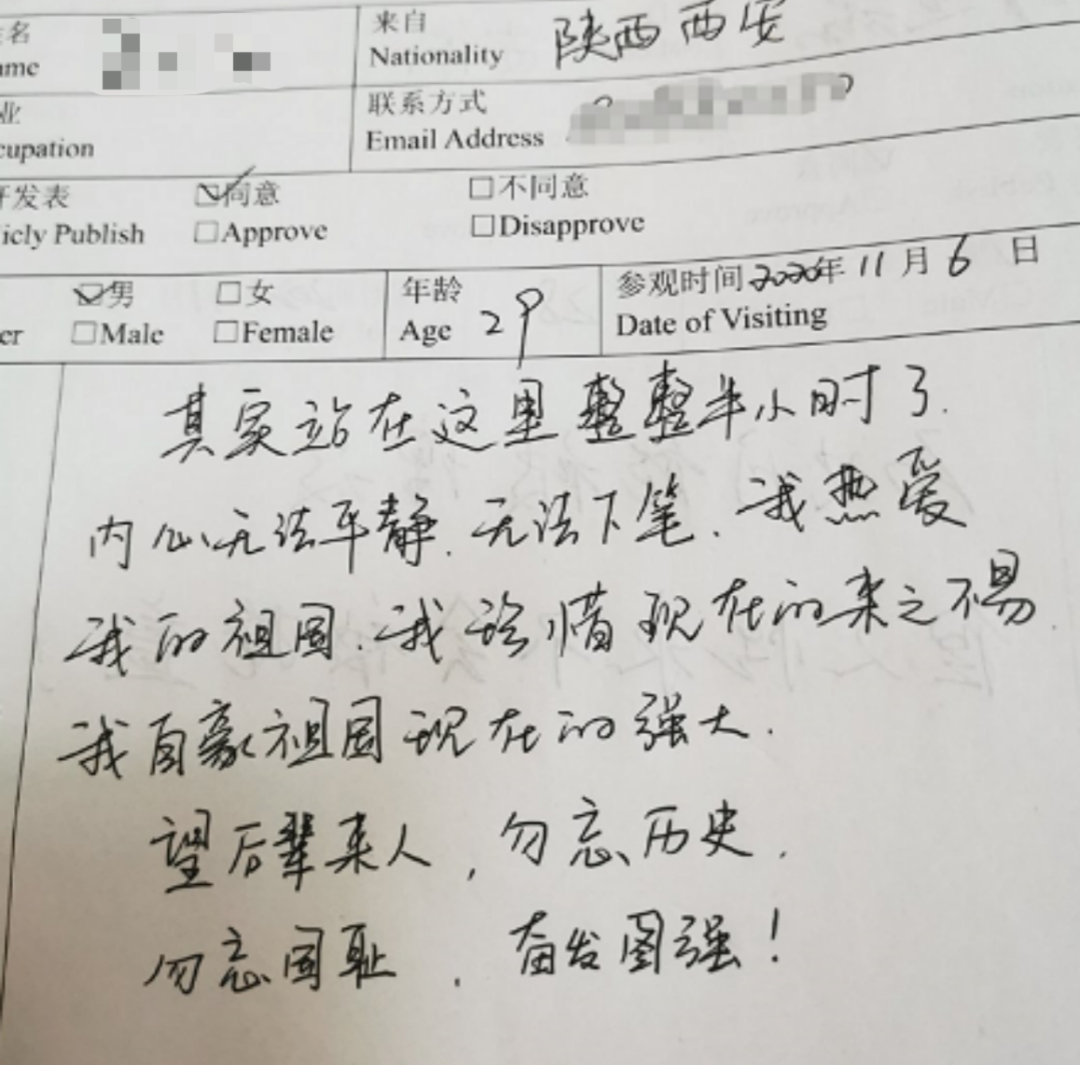 姓名 来自 陕西西安
ame Nationality
业 联系方式
cupation Email Address
开发表 同意 不同意
icly Publish Approve Disapprove
男 女 年龄 29 参观时间 2020年 11月 6日
er Male Female Age Date of Visiting
其实站在这里整整半小时了.
内心无法平静.无法下笔.我热爱
我的祖国.我珍惜现在的来之不易.
我自豪祖国现在的强大.
望后辈来人,勿忘历史.
勿忘国耻.奋发图强!